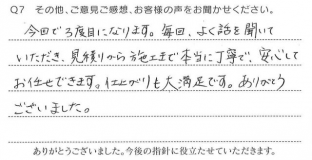 Q7 その他、ご意見ご感想、お客様の声をお聞かせください。
今回で3度目になります。毎回、よく話を聞いて
いただき、見積りから施工まで本当に丁寧で、安心して
お任せできます。仕上がりも大満足です。ありがとう
ございました。
ありがとうございました。今後の指針に役立たせていただきます。